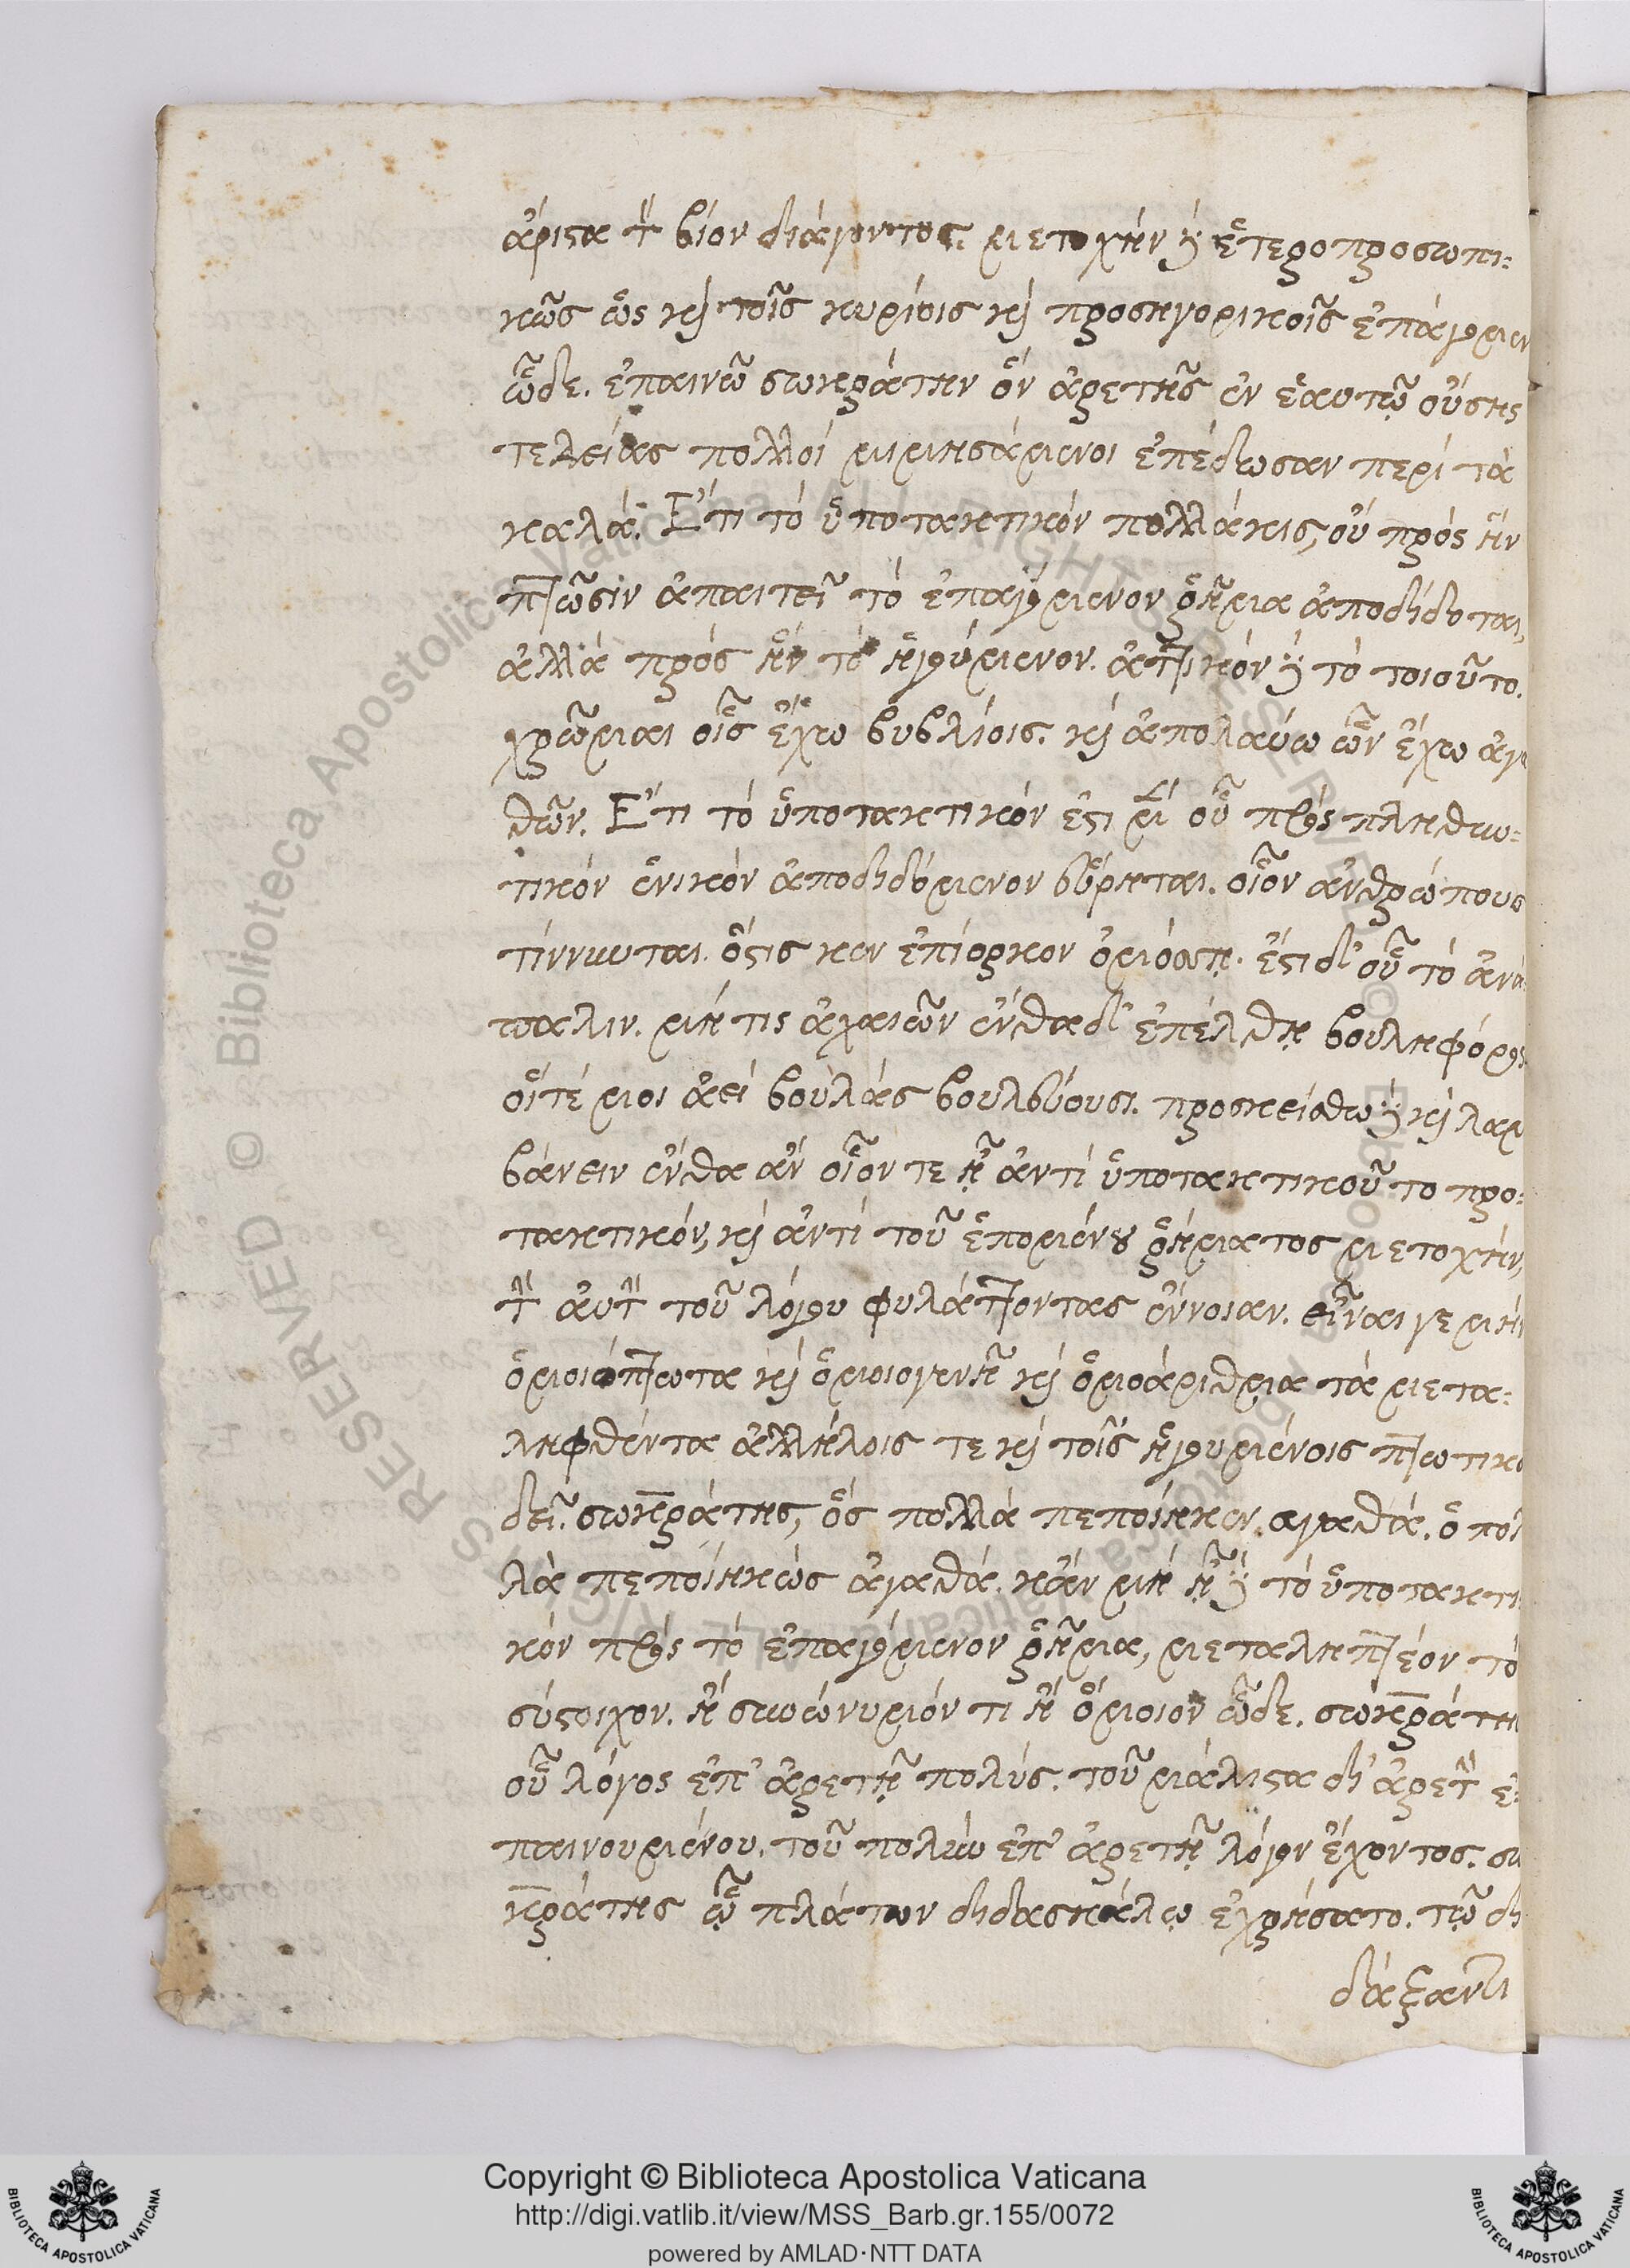 ἄριστα τὸν βίον διάγοντος. μετοχὴν δὲ ἑτεροπροσωπι=
κῶς ὡς καὶ τοῖς κυρίοις καὶ προσηγορικοῖς ἐπάγομεν
ὧδε. ἐπαινῶ σωκράτην ὃν ἀρετῆς ἐν ἑαυτῷ οὔσης
τελείας πολλοί μιμησάμενοι ἐπέδωσαν περί τὰ
καλά. Ἔτι τὸ ὑποτακτικόν πολλάκις, οὐ πρός ἣν
πτῶσιν ἀπαιτεῖ τὸ ἐπαγόμενον ῥῆμα ἀποδίδοται,
ἀλλά πρός ἣν τὸ ἡγούμενον. ἀττικόν δὲ τὸ τοιοῦτο.
χρῶμαι οἷς ἔχω βυβλίοις. καὶ ἀπολαύω ὧν ἔχω ἀγα
θῶν. Ἔτι τὸ ὑποτακτικόν ἔστι μὲν οὗ πρός πληθυν=
τικόν ἑνικόν ἀποδιδόμενον εὕρηται. οἷον ἀνθρώπους
τίννυνται. ὅστις κεν ἐπίορκον ὀμόσσῃ. ἔστι δ' οὗ τὸ ἀνά
παλιν. μή τις ἀχαιῶν ἐνθαδ' ἐπέλθῃ βουληφόρος
οἵτέ μοι ἀεί βουλάς βουλεύουσι. προσκείσθω δὲ καὶ λαμ
βάνειν ἔνθα ἄν οἷον τε ᾖ ἀντί ὑποτακτικοῦ το προ=
τακτικόν, καὶ ἀντί τοῦ ἑπομένου ῥήματος μετοχήν,
τὴν αὐτὴν τοῦ λόγου φυλάττοντας ἔννοιαν. εἶναι γε μήν
ὁμοιόπτωτα καὶ ὁμοιογενῆ καὶ ὁμοάριθμα τὰ μετα=
ληφθέντα ἀλλήλοις τε καὶ τοῖς ἡγουμένοις πτωτικο
δεῖ. σωκράτης, ὅς πολλά πεποίηκεν αγαθά. ὁ πολ
λὰ πεποιηκώς ἀγαθά. κἄν μή ᾖ δὲ τὸ ὑποτακτι
κόν πρός τὸ ἐπαγόμενον ῥῆμα, μεταληπτέον τὸ
σύστοιχον. ἤ συνώνυμόν τι ἤ ὅμοιον ὧδε. σωκράτης
οὗ λόγος ἐπ' ἀρετῇ πολύς. τοῦ μάλιστα δι' ἀρετὴν ἐ=
παινουμένου. τοῦ πολύν ἐπ' ἀρετῇ λόγον ἔχοντος. σω
κράτης ᾧ πλάτων διδασκάλῳ ἐχρήσατο. τῷ δι
δάξαντι
Copyright © Biblioteca Apostolica Vaticana
http://digi.vatlib.it/view/MSS_Barb.gr.155/0072
powered by AMLAD·NTT DATA